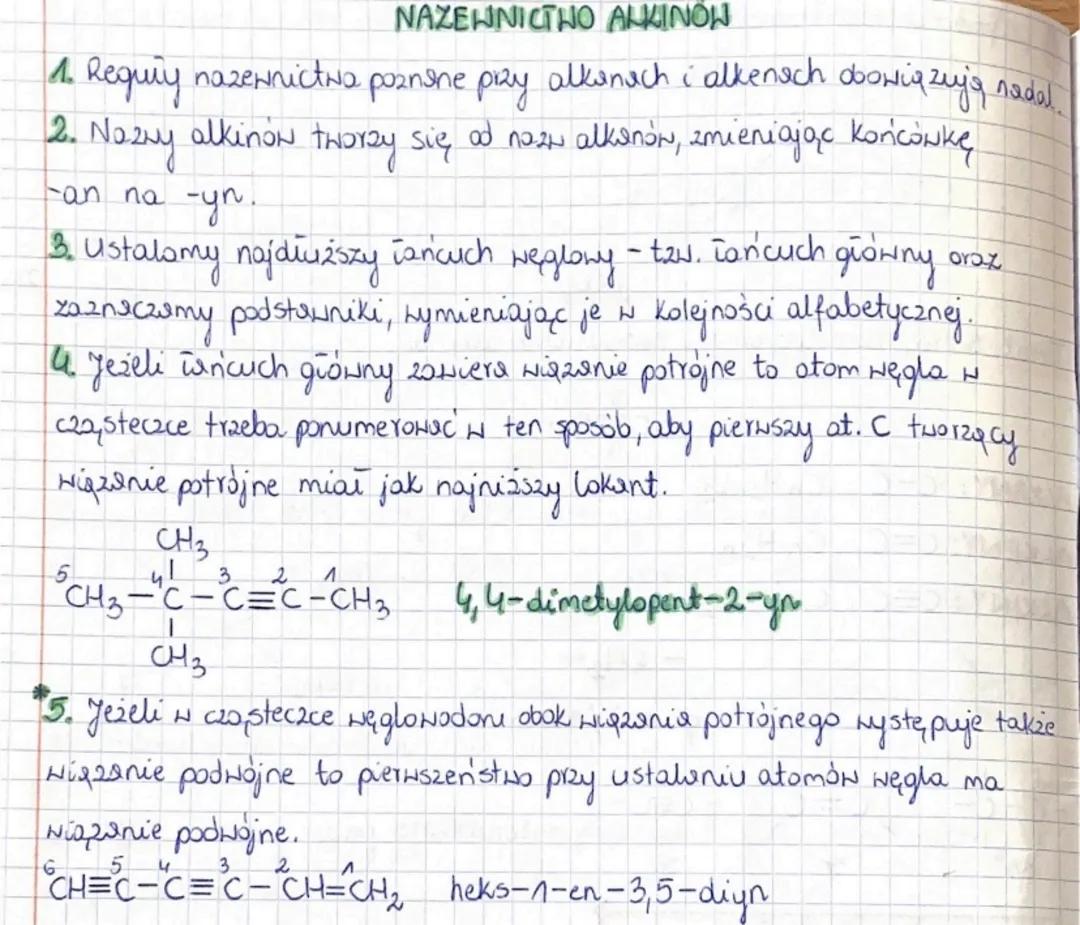 NAZEWNICTWO ALKINÓW
1. Reguły nazewnictwa poznane przy alkanach i alkenach obowiązują nadal.
2. Nazwy alkinów tworzy się od nazw alkanów, zmieniając końcówkę
-an na -yn.
3. Ustalamy najdłuższy łańcuch węglowy - tzw. łańcuch główny oraz
zaznaczamy podstawniki, wymieniając je w kolejności alfabetycznej.
4. Jeżeli łańcuch główny zawiera wiązanie potrójne to atom węgla w
cząsteczce trzeba ponumerować w ten sposób, aby pierwszy at. C tworzący
wiązanie potrójne miał jak najniższy lokant.
CH₃
5 4 3 2 1
CH₃-C-C≡C-CH₃ 4,4-dimetylopent-2-yn
CH₃
*5. Jeżeli w cząsteczce węglowodoru obok wiązania potrójnego występuje także
wiązanie podwójne to pierwszeństwo przy ustalaniu atomów węgla ma
wiązanie podwójne.
6 5 4 3 2 1
CH≡C-C≡C-CH=CH₂ heks-1-en-3,5-diyn